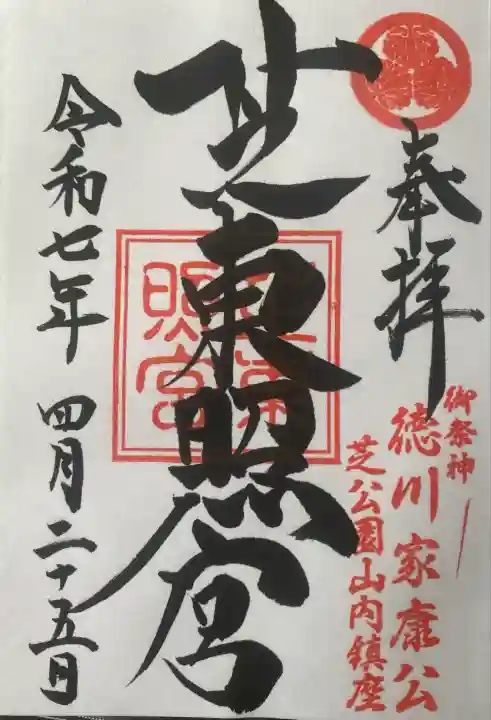 奉拝
御祭神
徳川家康公
芝公園山内鎮座
芝東照宮
令和七年 四月二十五日